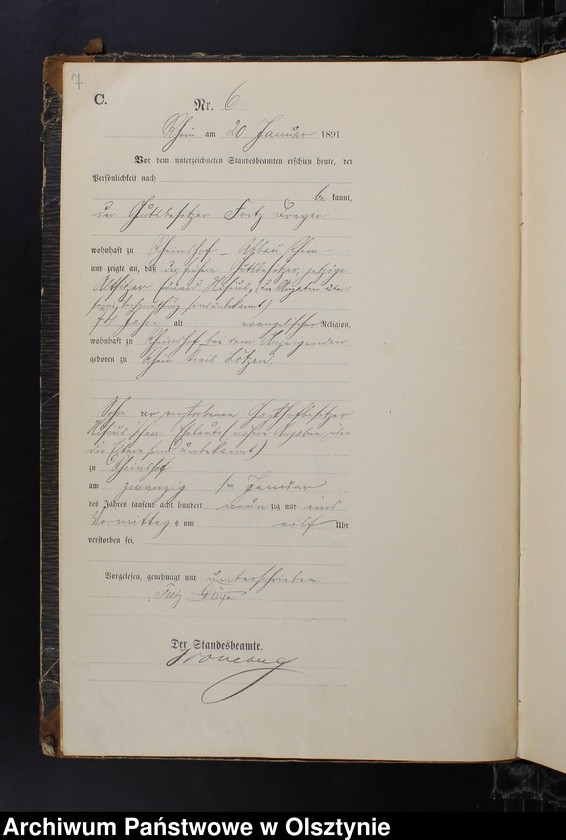 7
C.
Nr. 6
Rhein am 20 Januar 1891
Vor dem unterzeichneten Standesbeamten erschien heute, der
Persönlichkeit nach
be kannt,
der Gutsbesitzer Fritz
wohnhaft zu Rheinshof – Abbau Rhein –
und zeigte an, daß der frühere Gutsbesitzer, jetzige
Altsitzer
alt evangelischer Religion,
wohnhaft zu Rheinshof bei dem Anzeigenden
geboren zu Rhein Kreis Lötzen,
Sohn der verstorbenen Gasthofbesitzer
Eheleute (nähere Angaben über
die Eltern sind unbekannt)
zu Rheinshof
am zwanzig ten Januar
des Jahres tausend acht hundert neun zig und eins
Vormittag s um eilf Uhr
verstorben sei.
Vorgelesen, genehmigt und unterschrieben
Fritz
Der Standesbeamte.
Archiwum Państwowe w Olsztynie